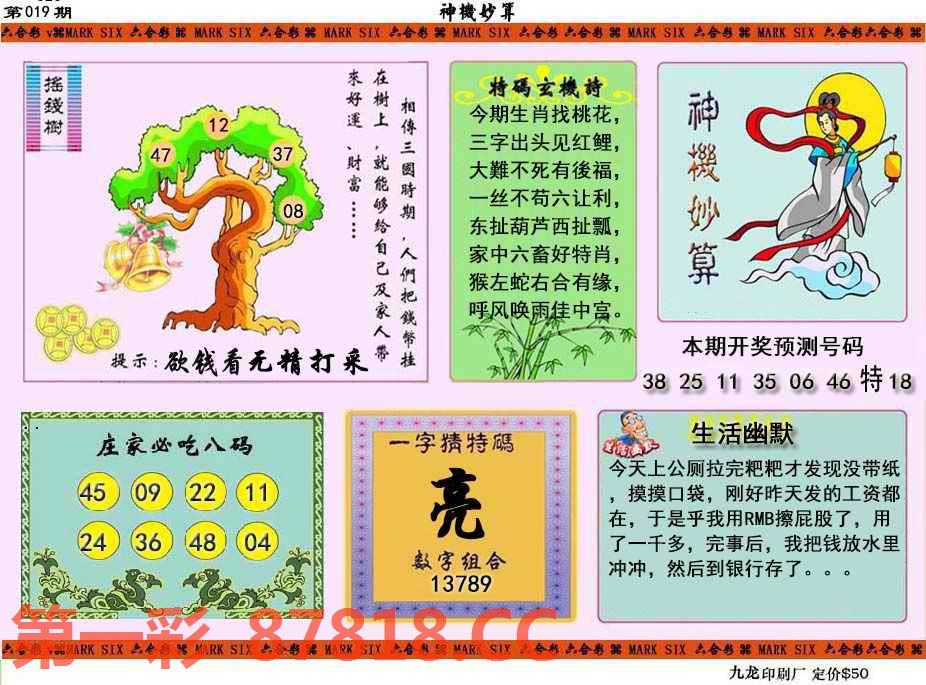 第019期
神機妙算
六合彩 MARK SIX 六合彩 MARK SIX 六合彩 MARK SIX 六合彩 MARK SIX 六合彩 MARK SIX 六合彩 MARK SIX 六合彩
搖錢樹
相傳三國時期，人們把錢幣挂
在樹上，就能够给自己及家人帶
來好運、財富……
12
47
37
08
提示：欲钱看无精打采
特碼玄機詩
今期生肖找桃花，
三字出头见红鲤，
大難不死有後福，
一丝不苟六让利，
东扯葫芦西扯瓢，
家中六畜好特肖，
猴左蛇右合有缘，
呼风唤雨佳中宫。
神機妙算
本期开奖预测号码
38 25 11 35 06 46 特18
庄家必吃八码
45 09 22 11
24 36 48 04
一字猜特碼
亮
数字组合
13789
生活幽默
生活幽默
今天上公厕拉完粑粑才发现没带纸
，摸摸口袋，刚好昨天发的工资都
在，于是乎我用RMB擦屁股了，用
了一千多，完事后，我把钱放水里
冲冲，然后到银行存了。。。
第一彩 87818.CC
六合彩 MARK SIX 六合彩 MARK SIX 六合彩 MARK SIX 六合彩 MARK SIX 六合彩 MARK SIX 六合彩 MARK SIX 六合彩
九龙印刷厂 定价$50